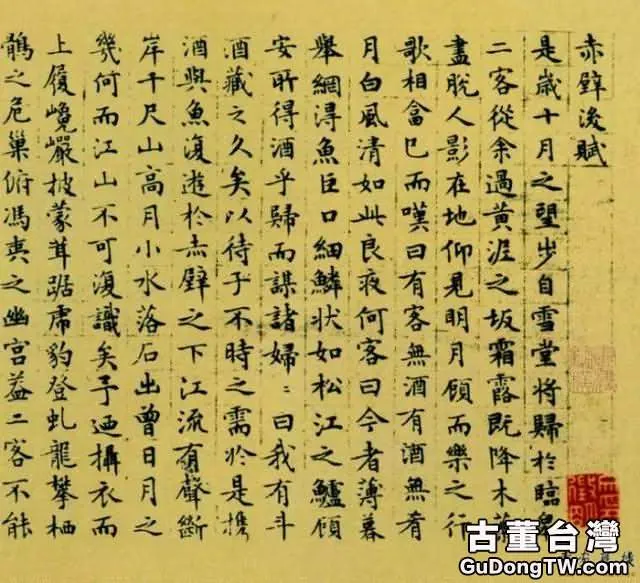 赤壁後賦
是歲十月之望步自雪堂將歸於臨皋
二客從余過黃泥之坂霜露既降木葉
盡脫人影在地仰見明月顧而樂之行
歌相畣已而嘆曰有客無酒有酒無肴
月白風清如此良夜何客曰今者薄暮
舉網得魚巨口細鱗狀如松江之鱸顧
安所得酒乎歸而謀諸婦〻曰我有斗
酒藏之久矣以待子不時之需於是攜
酒與魚復遊於赤壁之下江流有聲斷
岸千尺山高月小水落石出曾日月之
幾何而江山不可復識矣予迺攝衣而
上履巉巖披蒙茸踞虎豹登虬龍攀栖
鶻之危巢俯馮夷之幽宮蓋二客不能
古董台灣
GuDongTW.com